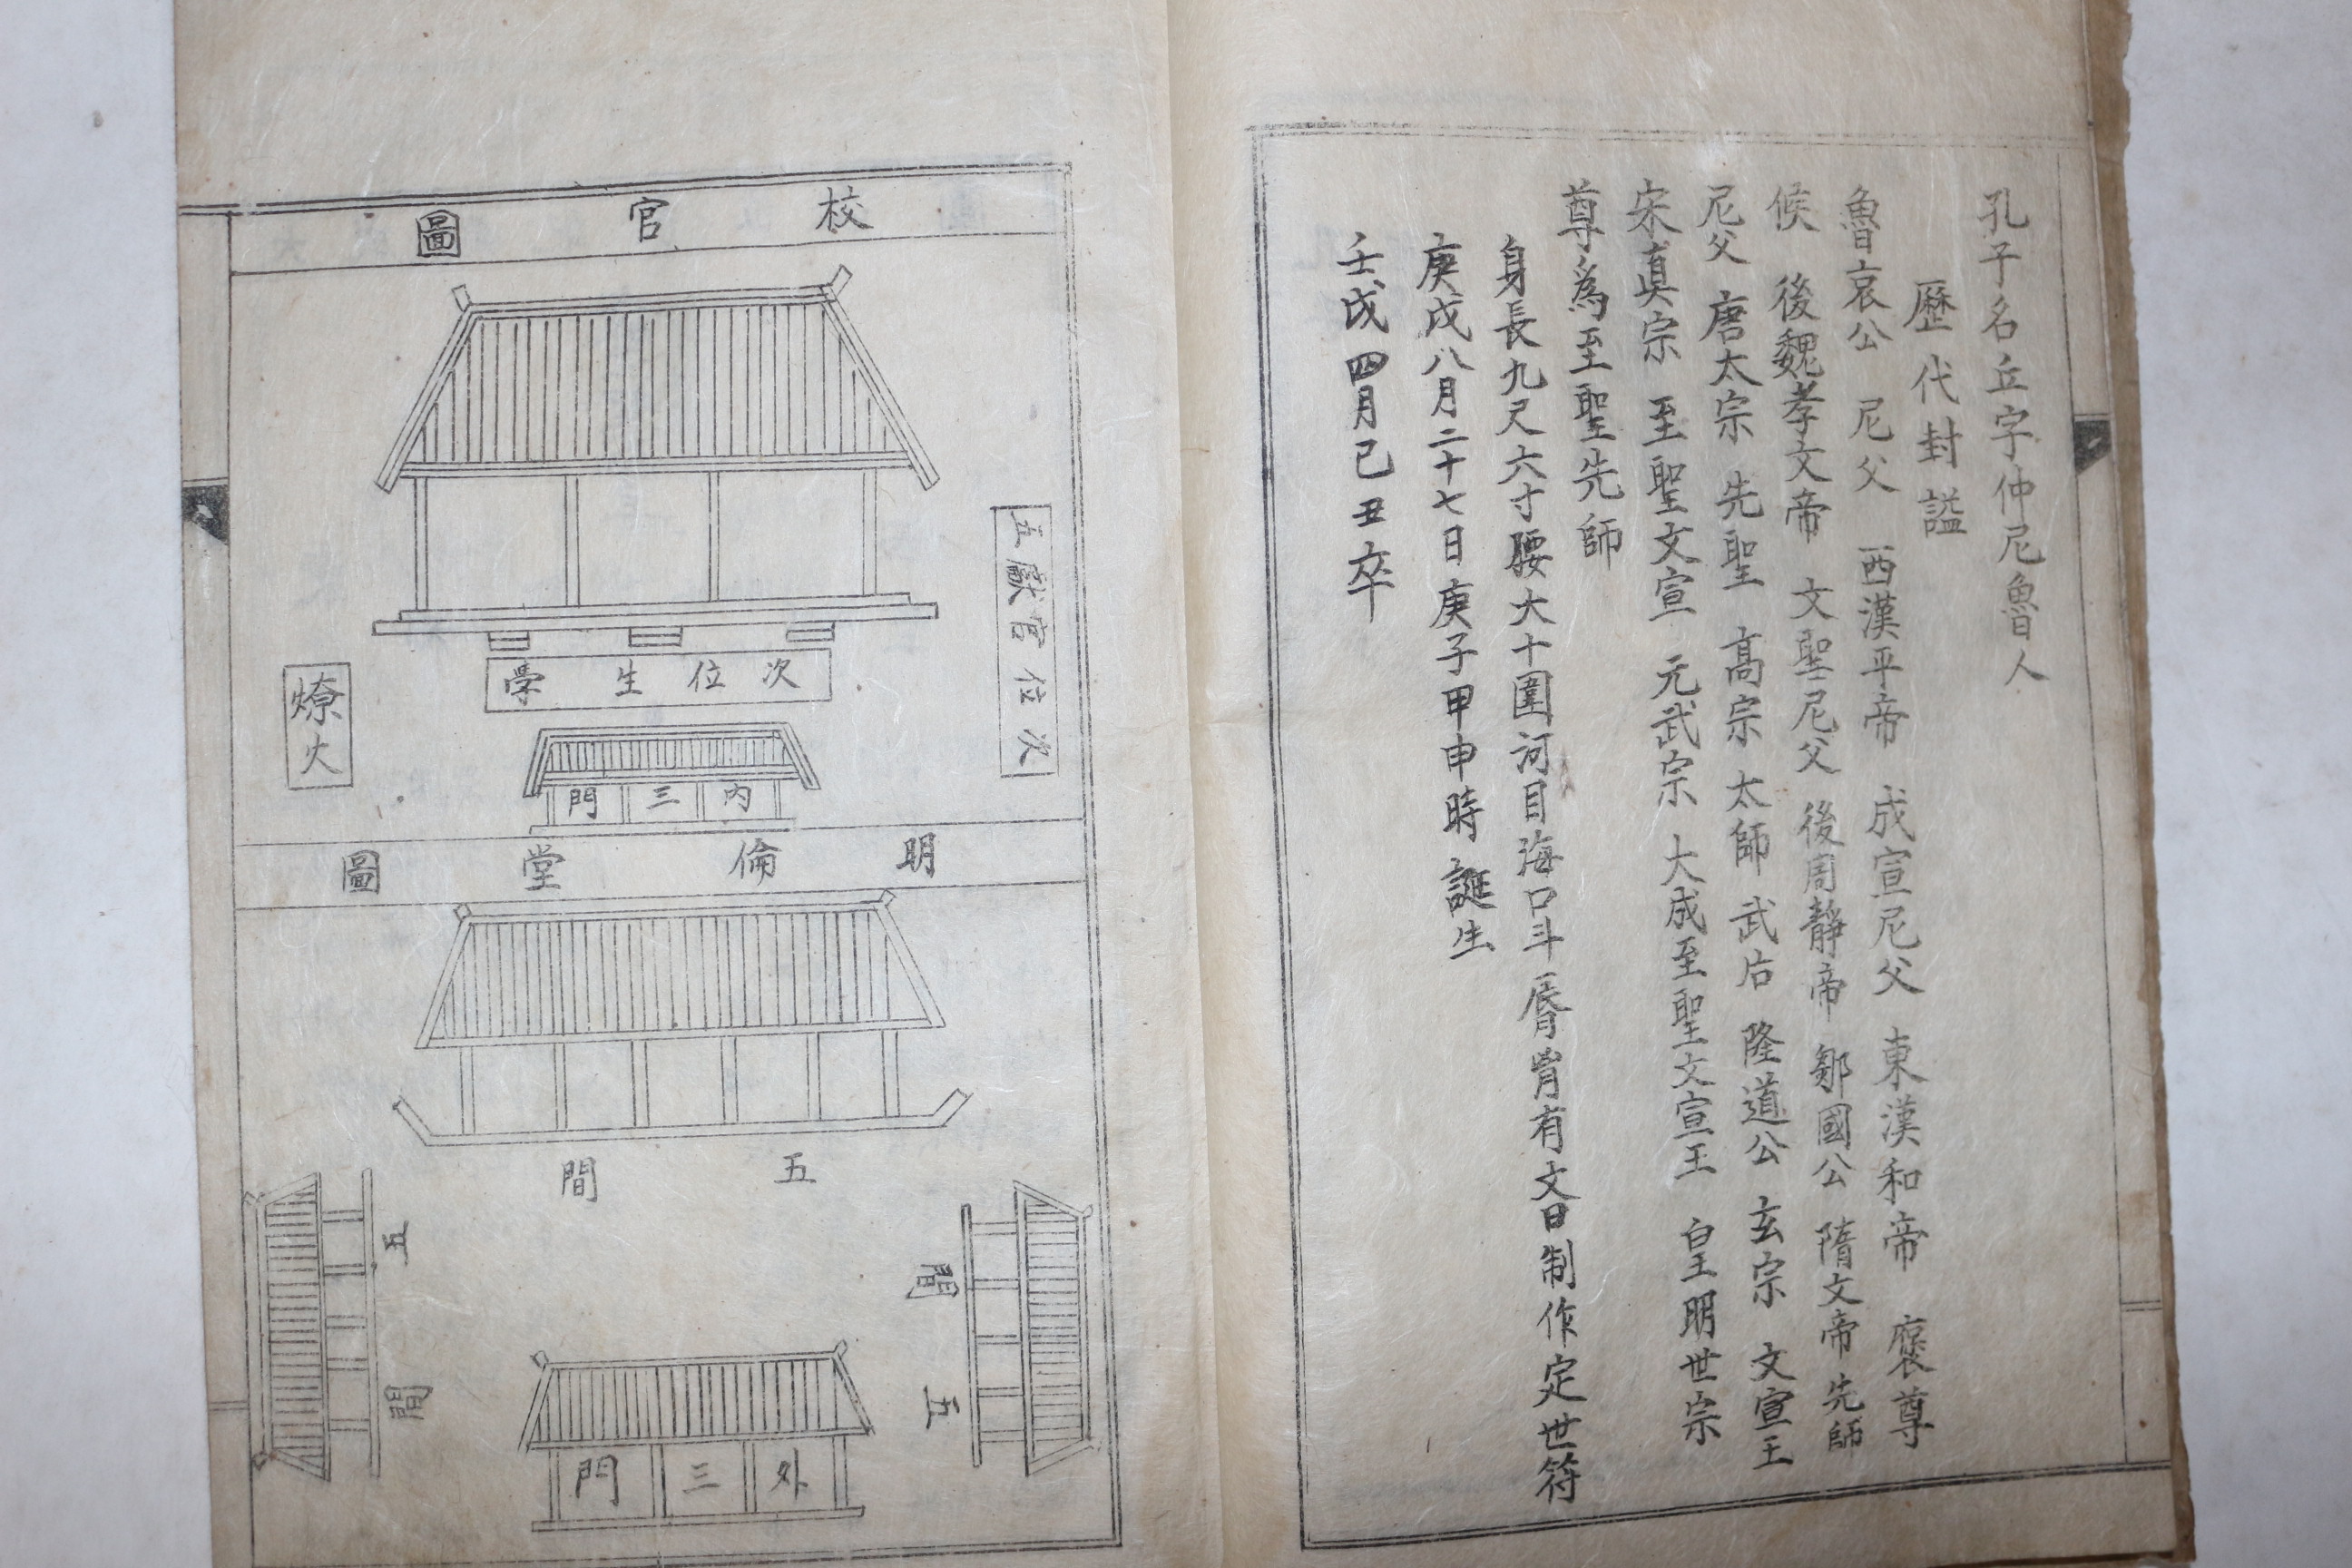 孔子名丘字仲尼魯人
歷代封謚
魯哀公 尼父 西漢平帝 成宣尼父 東漢和帝 褒尊
候 後魏孝文帝 文聖尼父 後周靜帝 鄒國公 隋文帝先師
尼父 唐太宗 先聖 高宗 太師 武后 隆道公 玄宗 文宣王
宋眞宗 至聖文宣 元武宗 大成至聖文宣王 皇明世宗
尊爲至聖先師
身長九尺六寸腰大十圍河目海口斗脣胷有文曰制作定世符
庚戌八月二十七日庚子甲申時誕生
壬戌四月己丑卒
校官圖
五獻官位次
學生位次
燎火
內三門
明倫堂圖
五間
五間
五間
外三門